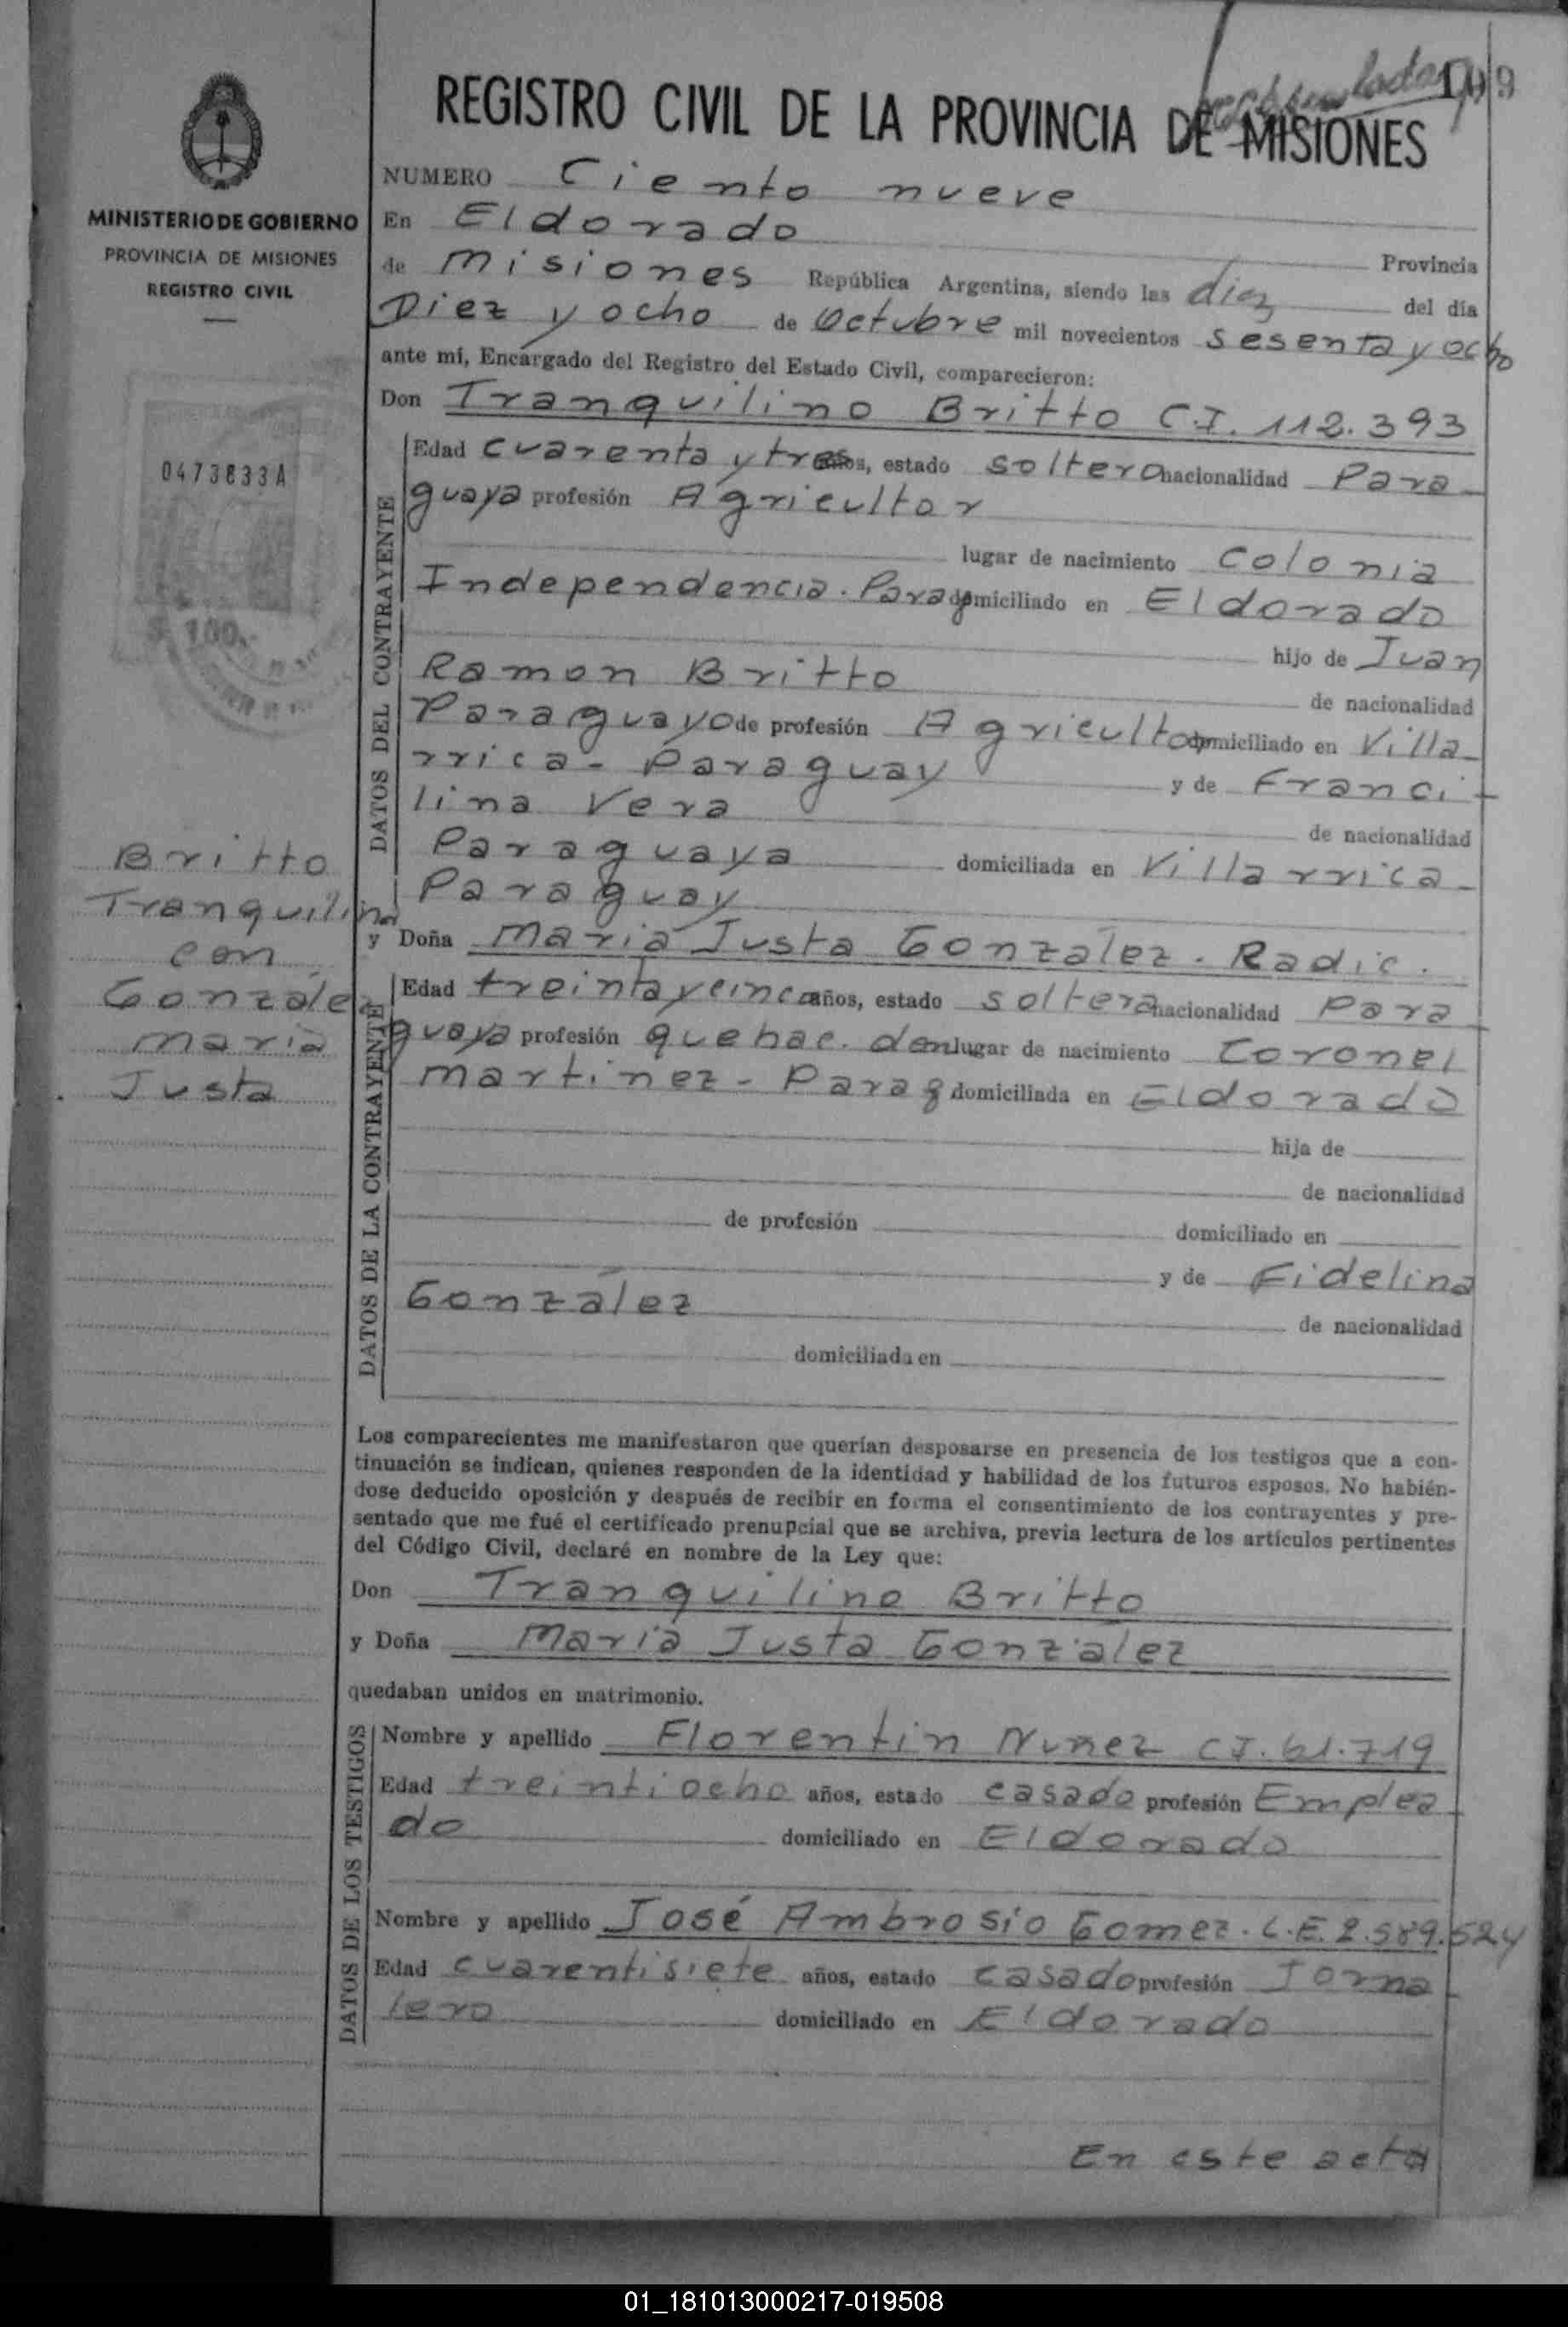 109
REGISTRO CIVIL DE LA PROVINCIA DE MISIONES
MINISTERIO DE GOBIERNO
PROVINCIA DE MISIONES
REGISTRO CIVIL
0473833A
$ 100.-
Britto
Tranquilino
con
Gonzále
María
Justa
NUMERO Ciento nueve
En Eldorado Provincia
de Misiones República Argentina, siendo las diez del día
Diez y ocho de Octubre mil novecientos sesenta y ocho
ante mí, Encargado del Registro del Estado Civil, comparecieron:
Don Tranquilino Britto C.I. 112.393
DATOS DEL CONTRAYENTE
Edad cuarenta y tres años, estado soltero nacionalidad Para-
guaya profesión Agricultor
lugar de nacimiento Colonia
Independencia. Parag domiciliado en Eldorado
hijo de Juan
Ramon Britto de nacionalidad
Paraguayo de profesión Agricultor domiciliado en Villa-
rrica - Paraguay y de Franci-
lina Vera de nacionalidad
Paraguaya domiciliada en Villarrica-
Paraguay
y Doña María Justa González. Radic.
DATOS DE LA CONTRAYENTE
Edad treinta y cinco años, estado soltera nacionalidad Para-
guaya profesión quehac. dom lugar de nacimiento Coronel
Martinez - Parag domiciliada en Eldorado
hija de
de nacionalidad
de profesión domiciliado en
y de Fidelina
González de nacionalidad
domiciliada en
Los comparecientes me manifestaron que querían desposarse en presencia de los testigos que a con-
tinuación se indican, quienes responden de la identidad y habilidad de los futuros esposos. No habién-
dose deducido oposición y después de recibir en forma el consentimiento de los contrayentes y pre-
sentado que me fué el certificado prenupcial que se archiva, previa lectura de los artículos pertinentes
del Código Civil, declaré en nombre de la Ley que:
Don Tranquilino Britto
y Doña María Justa González
quedaban unidos en matrimonio.
DATOS DE LOS TESTIGOS
Nombre y apellido Florentin Nuñez C.I. 61.719
Edad treintiocho años, estado casado profesión Emplea-
do domiciliado en Eldorado
Nombre y apellido José Ambrosio Gomez. L.E. 2.589.524
Edad cuarentisiete años, estado casado profesión Jorna-
lero domiciliado en Eldorado
En este acto
01_181013000217-019508